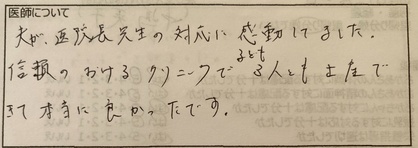 医師について
夫が、医院長先生の対応に感動してました。
信頼のおけるクリニックで2人とも出産で
きて本当に良かったです。